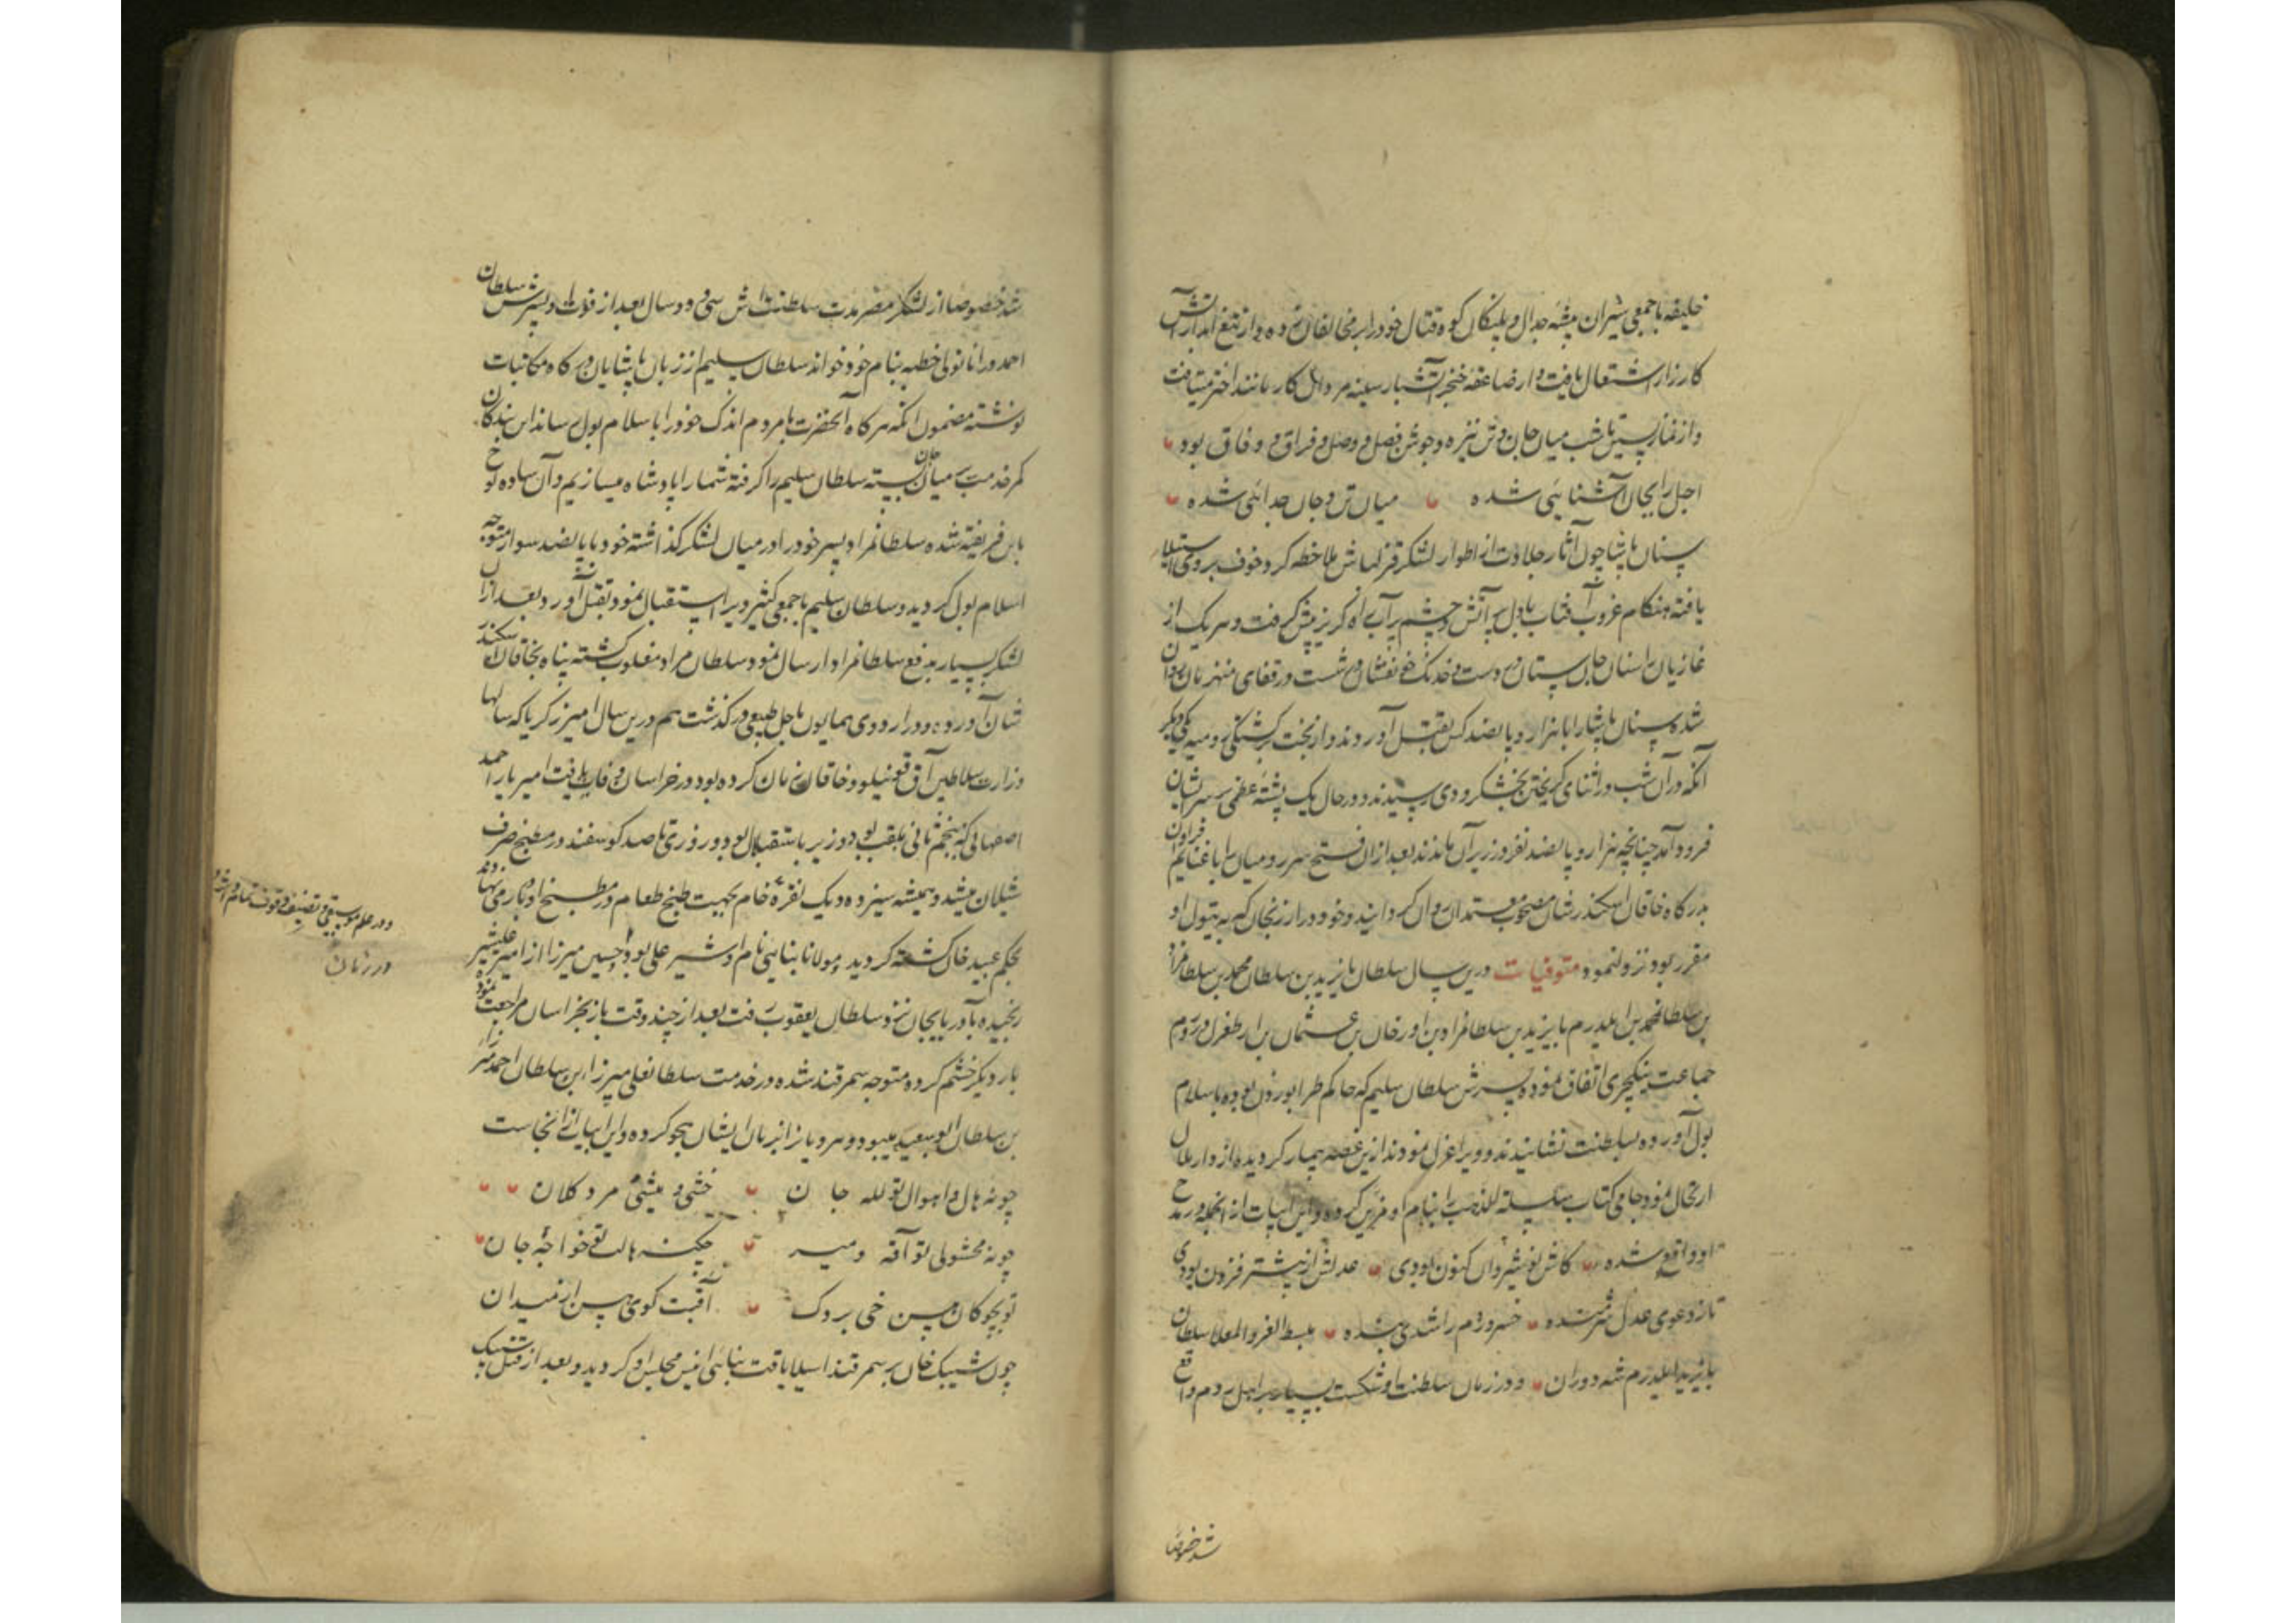 خلیفه با جمعی شیران بیشه جدال و پلنگان کوه قتال خود را بر مخالفان زده و از تیغ آبدار آتش
کارزار اشتعال یافت و از صاعقه خنجر آتشبار سینه مردان کار مانند اختر میتافت
و از نماز پسین تا شب میان جان و تن نیزه و جوشن فصل و وصل و فراق و وفاق بود
اجل را بجان آشنایی شده میان تن و جان جدائی شده
سنان پاشا چون آثار جلادت از اطوار لشکر قزلباش ملاحظه کرد خوف بر وی استیلا
یافته هنگام غروب آفتاب با دل پر آتش و چشم پر آب راه گریز پیش گرفت و هر یک از
غازیان را سنان جان ستان در دست و خدنک خون فشان در شست در قفای منهزمان روان
شده سنان پاشا را با هزار و پانصد کس بقتل آوردند و از بخت برگشتگی رومیه یکی دیگر
آنکه در آن شب در اثنای گریختن بخشکرودی رسیدند در حال یک پشته عظیم بر سر ایشان
فرود آمد چنانچه هزار و پانصد نفر در زیر آن ماندند بعد از آن فتح سر رومیان را با غنایم فراوان
بدرگاه خاقان اسکندر شان مصحوب معتمدان روان گردانیده و خود در ارزنجان که به تیول او
مقرر بود نزول نمود متوفیات درین سال سلطان بایزید بن سلطان محمد بن سلطان مراد
بن سلطان محمد بن ایلدرم بایزید بن سلطان مراد بن اورخان بن عثمان بن ارطغرل در روم
جماعت ینکچری اتفاق نموده پسرش سلطان سلیم که حاکم طرابوزون بود باسلام
بول آورده بسلطنت نشانیدند و ویرا عزل نمودند ازین غصه بیمار گردیده از دار ملال
ارتحال نمود جامی کتاب سلسلة الذهب را بنام او مزین کرده و این ابیات از آنجمله در مدح
او واقع شده کاش نوشیروان کنون بودی عدلش از پیشتر فزون بودی
تا ز دعوی عدل شرمنده خسرو روم را شدی بنده مبسط العز و العلا سلطان
بایزید ایلدرم شه دوران و در زمان سلطنت او شکست بسیار بر اهل روم واقع
شد خصوصا
شد خصوصا از لشکر مصر مدت سلطنتش سی و دو سال بعد از فوت او پسرش سلطان
احمد در اناتولی خطبه بنام خود خواند سلطان سلیم از زبان پاشایان درگاه مکاتبات
نوشته مضمون آنکه هر گاه آنحضرت با مردم اندک خود را باسلام بول رساند این بندگان
کمر خدمت بر میان جان بسته سلطان سلیم را گرفته شما را پادشاه میسازیم و آن ساده لوح
باین فریفته شده سلطان مراد پسر خود را در میان لشکر گذاشته خود با پانصد سوار متوجه
اسلام بول گردید و سلطان سلیم با جمعی کثیر ویرا استقبال نمود بقتل آورد و بعد از آن
لشکر بسیار بدفع سلطان مراد ارسال نمود سلطان مراد مغلوب گشته پناه بخاقان اسکندر
شان آورده و در اردوی همایون باجل طبیعی درگذشت هم درین سال امیر زکریا که سالها
وزارت سلاطین آق قوینلو و خاقان زمان کرده بود در خراسان وفات یافت امیر یار احمد
اصفهانی که بنجم ثانی ملقب بود وزیر باستقلال بود و روزی تا صد گوسفند در مطبخ صرف
شیلان میشد و همیشه سیزده دیک نقره خام بجهت طبخ طعام در مطبخ او بار می نهادند
بحکم عبید خان کشته گردید و مولانا بنایی نام او شیر علی بود و حسین میرزا از امیر علیشیر
رنجیده بآذربایجان نزد سلطان یعقوب رفت بعد از چند وقت باز بخراسان مراجعت نمود
بار دیگر خشم کرده متوجه سمرقند شده در خدمت سلطانعلی میرزا ابن سلطان احمد میرزا
بن سلطان ابو سعید میبود و سرو پا ز از زبان ایشان هجو کرده و این ابیات از آنجاست
چونه هال و اهوال تو لله جان خشی و میشی مرد کلان
چونه محشولی تو آقه و میر چکینه هالت تو خواجه جان
تو بچوکان پسن خمی بردک آقبت کوی پسن از میدان
چون شیبک خان بر سمرقند استیلا یافت بنائی انیس مجلس او گردید و بعد از قتل شیبک
و در علم موسیقی و تصنیف وقوف تمام داشت
در زمان